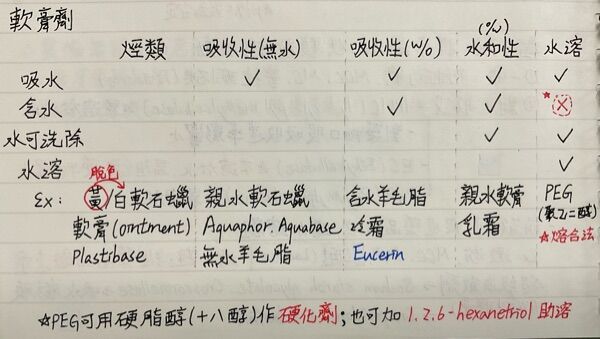 軟膏劑
烴類 吸收性(無水) 吸收性(w/o) 水和性(o/w) 水溶
吸水 ✓ ✓ ✓ ✓
含水 ✓ ✓ ☆✗
水可洗除 ✓ ✓
水溶 ✓
脫色
Ex: 黃/白軟石蠟 親水軟石蠟 含水羊毛脂 親水軟膏 PEG
軟膏(ointment) Aquaphor. Aquabase 冷霜 乳霜 (聚乙二醇)
Plastibase 無水羊毛脂 Eucerin ☆熔合法
☆PEG可用硬脂醇(十八醇)作硬化劑;也可加 1.2.6-hexanetriol 助溶